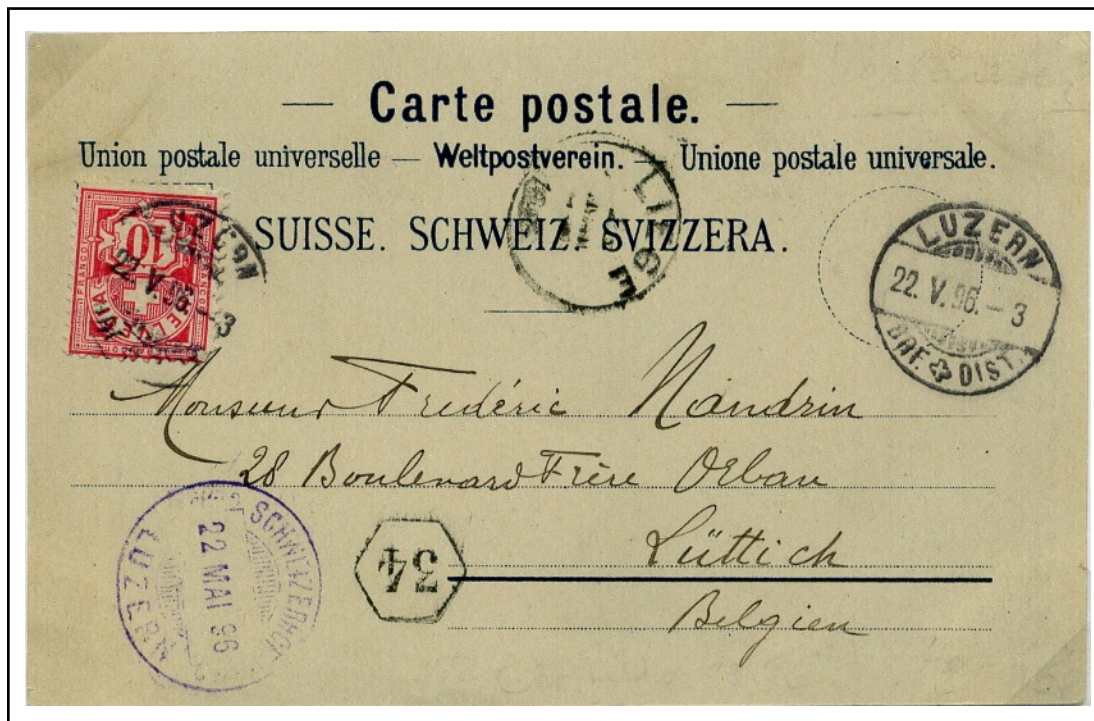 — Carte postale. —
Union postale universelle — Weltpostverein. — Unione postale universale.
SUISSE. SCHWEIZ. SVIZZERA.
FRANCO
10
LUZERN
22.V.96.–3
LIEGE
LUZERN
22.V.96.–3
BRF. DIST.
Monsieur Frédéric Nandrin
28 Boulevard Frère Orban
Lüttich
Belgien
SCHWEIZERHOF
22 MAI 96
LUZERN
34